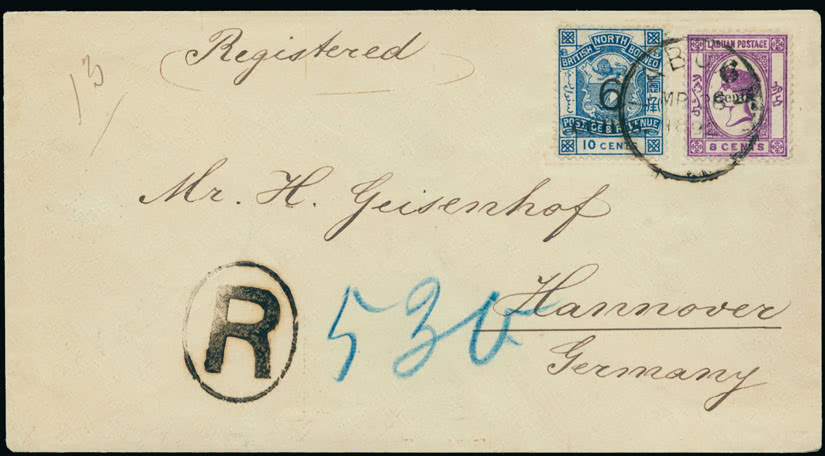 Registered
13
BRITISH NORTH BORNEO
6
POSTAGE & REVENUE
10 CENTS
LABUAN POSTAGE
6
Cents
8 CENTS
Mr. H. Geisenhof
R
530
Hannover
Germany